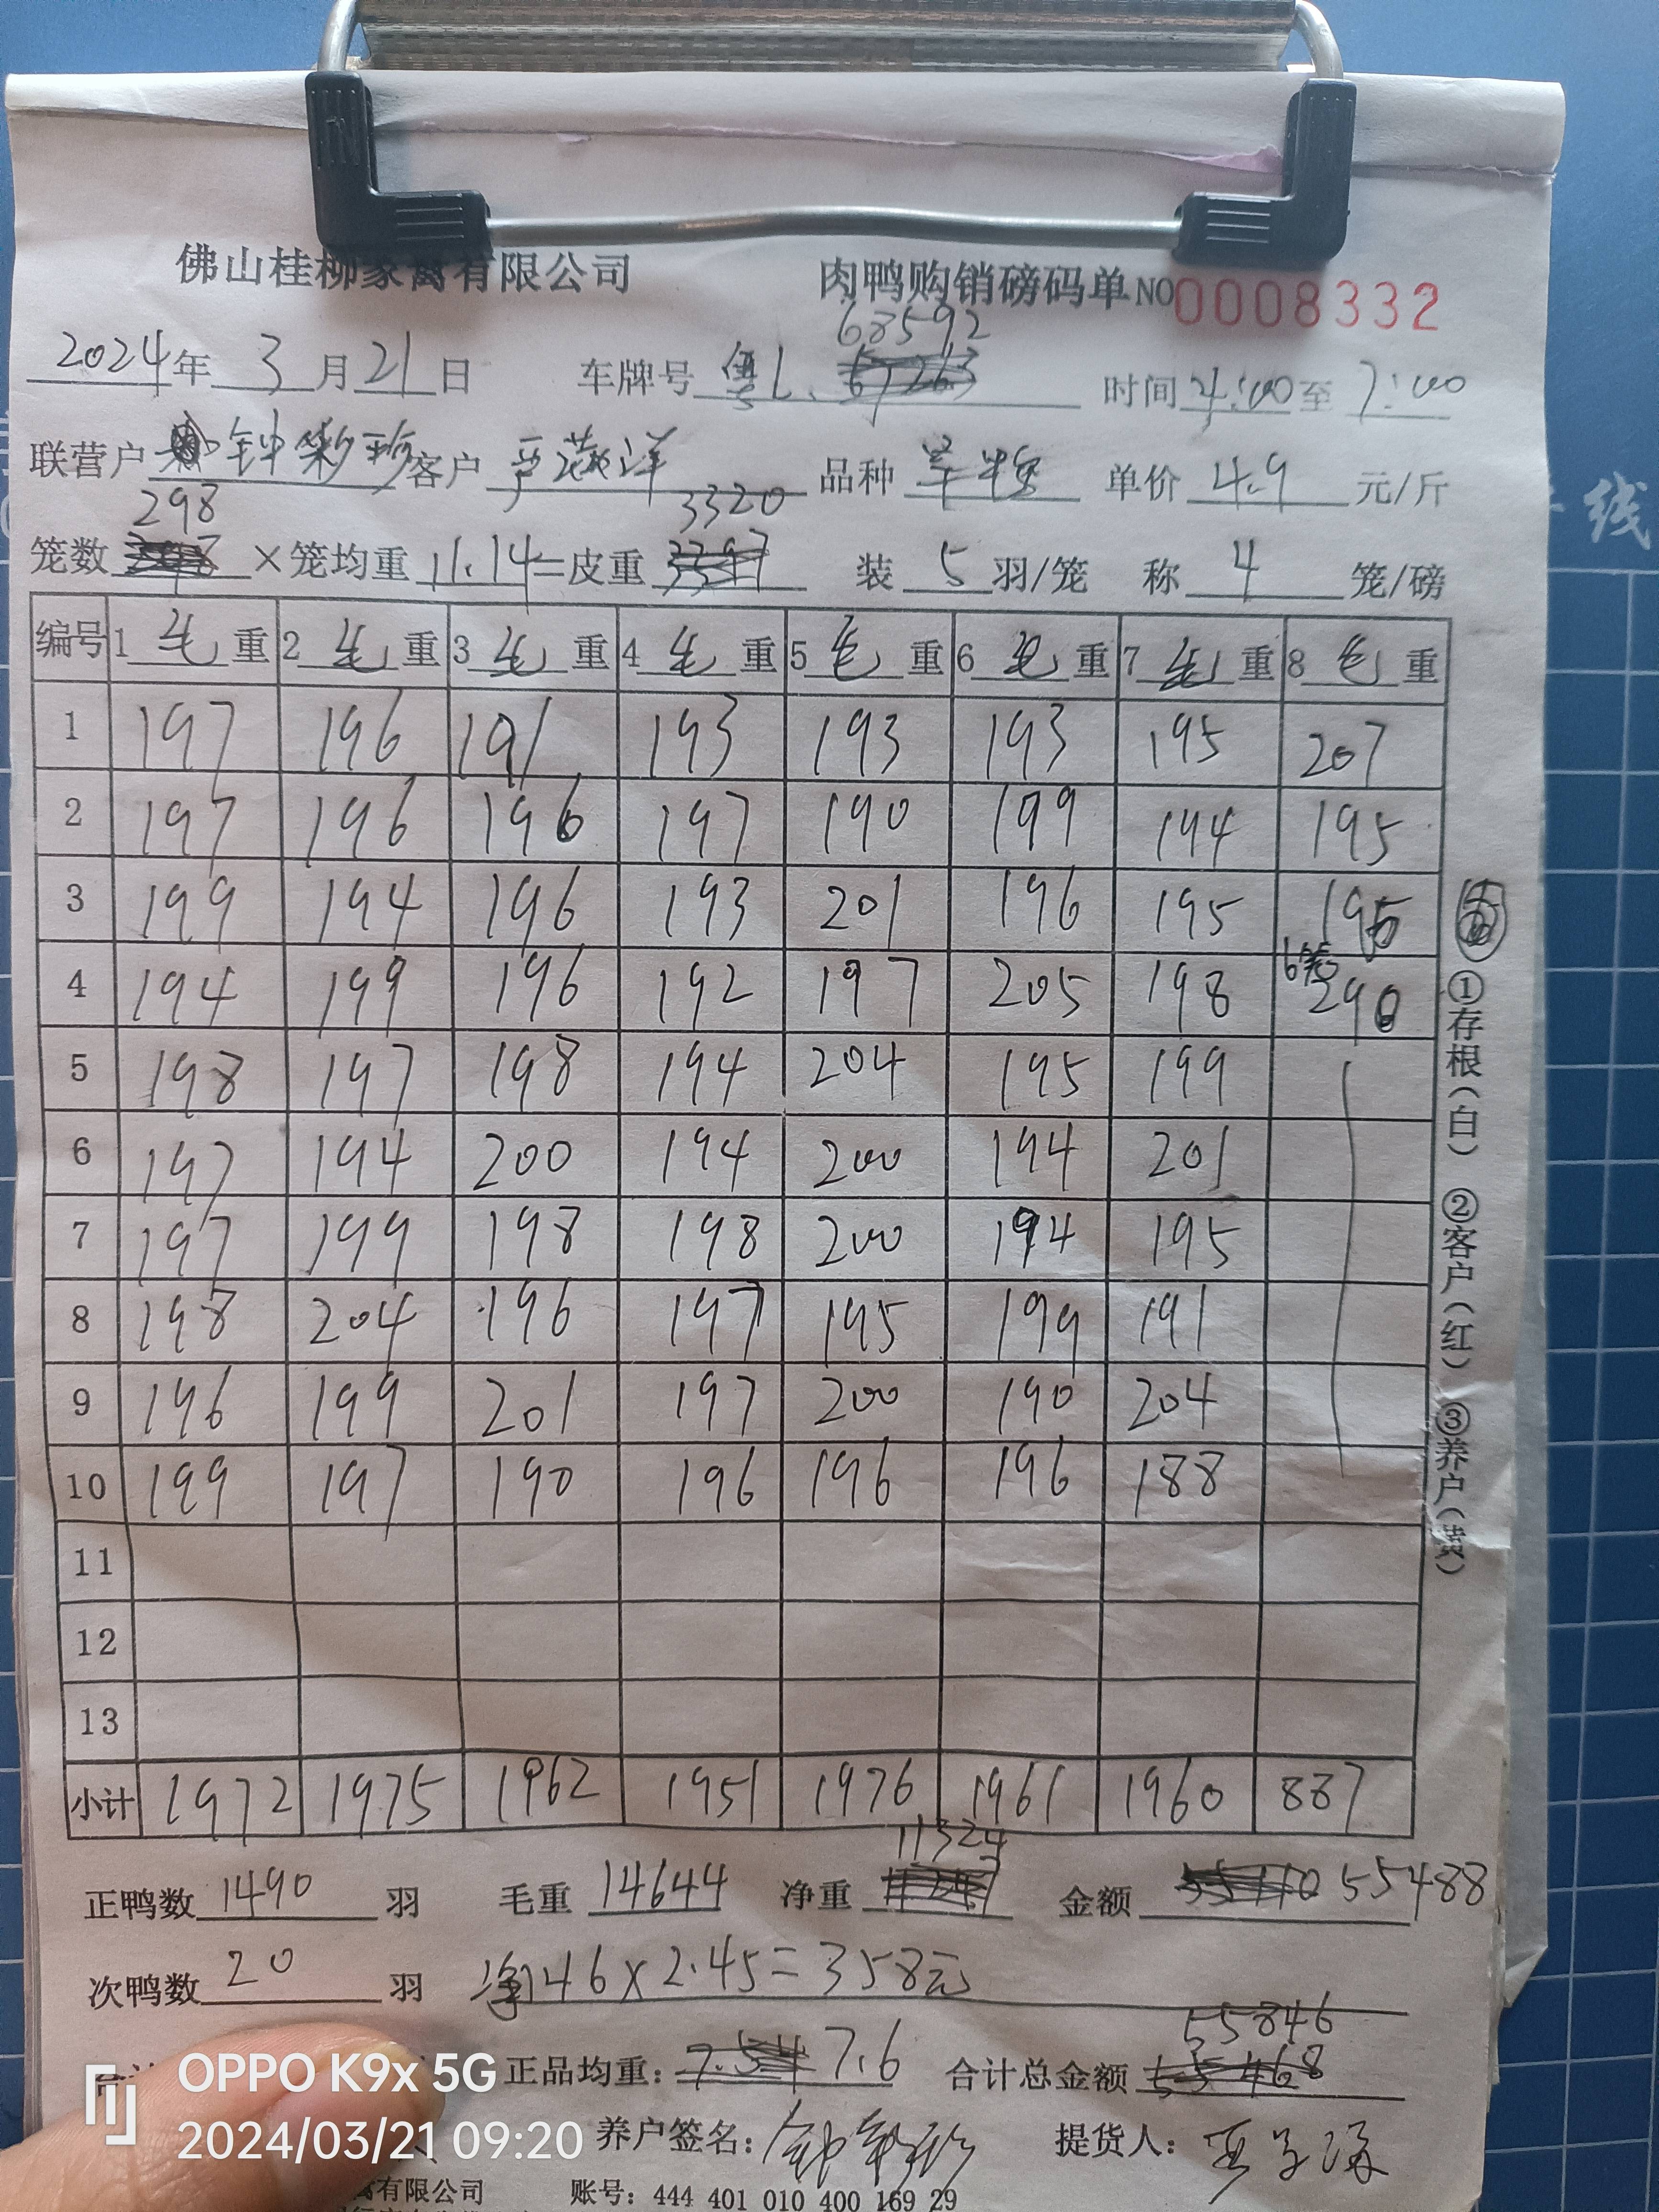 佛山桂柳家禽有限公司 肉鸭购销磅码单 NO 0008332
68592
2024年 3月21日 车牌号 粤L. 时间 4:00 至 7:00
联营户 钟彩珍 客户 严 洋 品种 单价 4.9 元/斤
298 3320
笼数 ×笼均重 11.14=皮重 装 5 羽/笼 称 4 笼/磅
编号 1 毛 重 2 毛 重 3 毛 重 4 毛 重 5 毛 重 6 毛 重 7 毛 重 8 毛 重
1 197 196 191 193 193 193 195 207
2 197 196 196 197 190 199 194 195
3 199 194 196 193 201 196 195 195
4 194 199 196 192 197 205 198 6笼 290
5 198 197 198 194 204 195 199
6 197 194 200 194 200 194 201
7 197 199 198 198 200 194 195
8 198 204 196 197 195 199 191
9 196 199 201 197 200 190 204
10 199 197 190 196 196 196 188
11
12
13
小计 1972 1975 1962 1951 1976 1961 1960 887
11324
正鸭数 1490 羽 毛重 14644 净重 金额 55488
次鸭数 20 羽 净146×2.45=358元
55846
正品均重: 7.6 合计总金额
养户签名: 钟彩珍 提货人:
禽有限公司 账号: 444 401 010 400 169 29
①存根(白) ②客户(红) ③养户(黄)
线
OPPO K9x 5G
2024/03/21 09:20